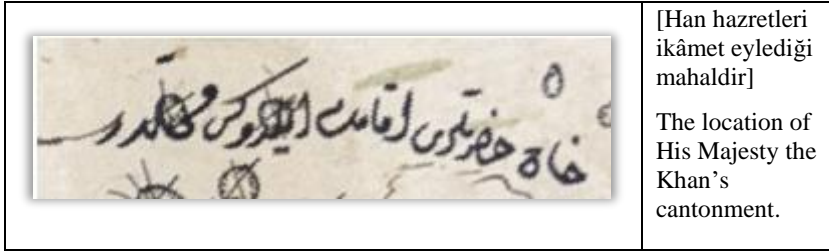 خان حضرتلری اقامت ایلدوکی محلدر
[Han hazretleri
ikâmet eylediği
mahaldir]
The location of
His Majesty the
Khan's
cantonment.